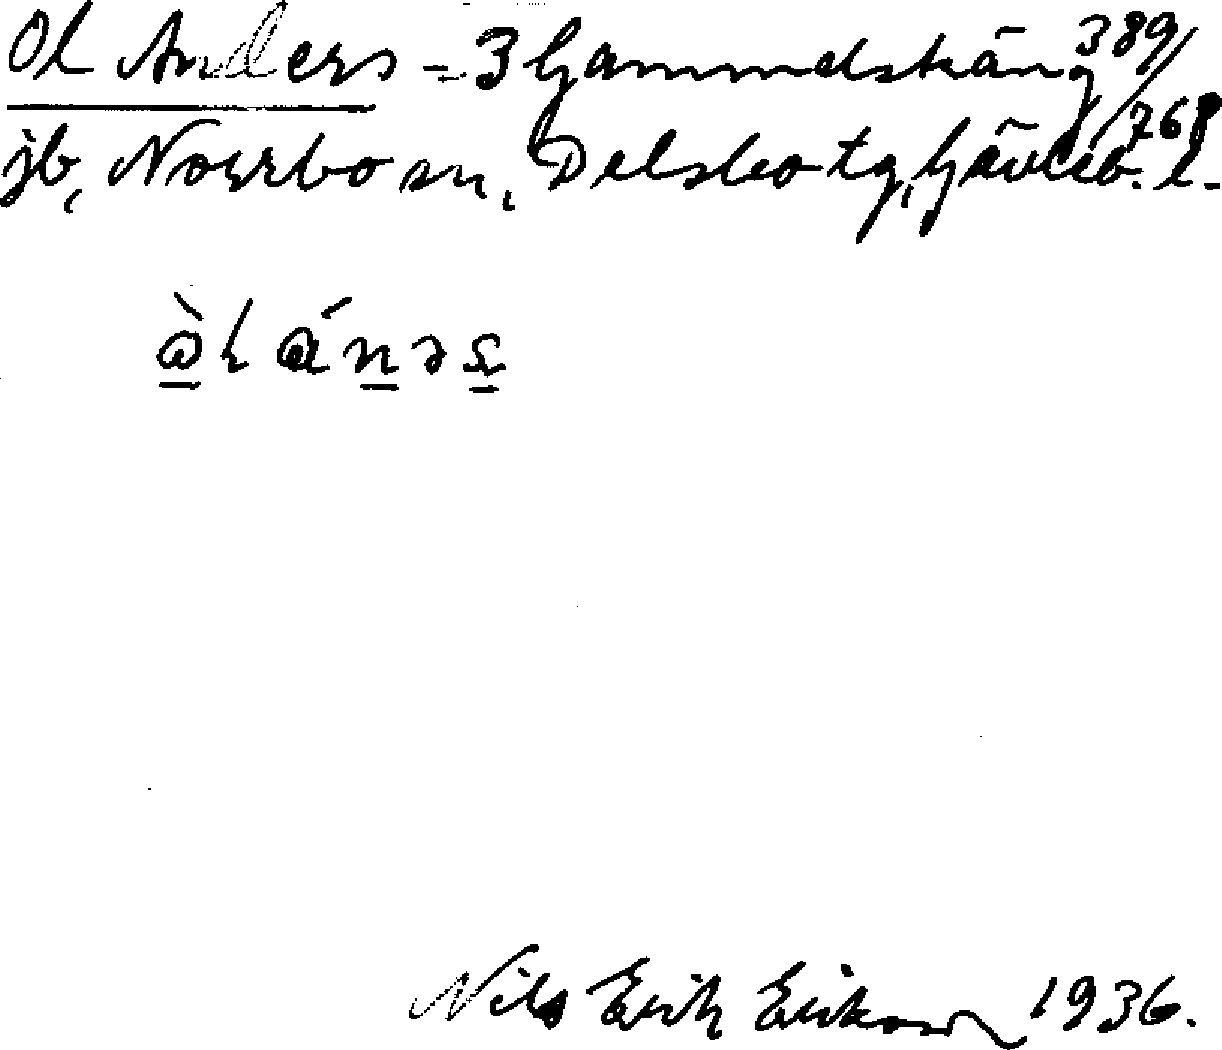 Ol Anders = 3 Gammelskäng 389/768
jb, Norrbo sn, Delsbo tg, Gävleb. l.
Nils Erik Erikson 1936.